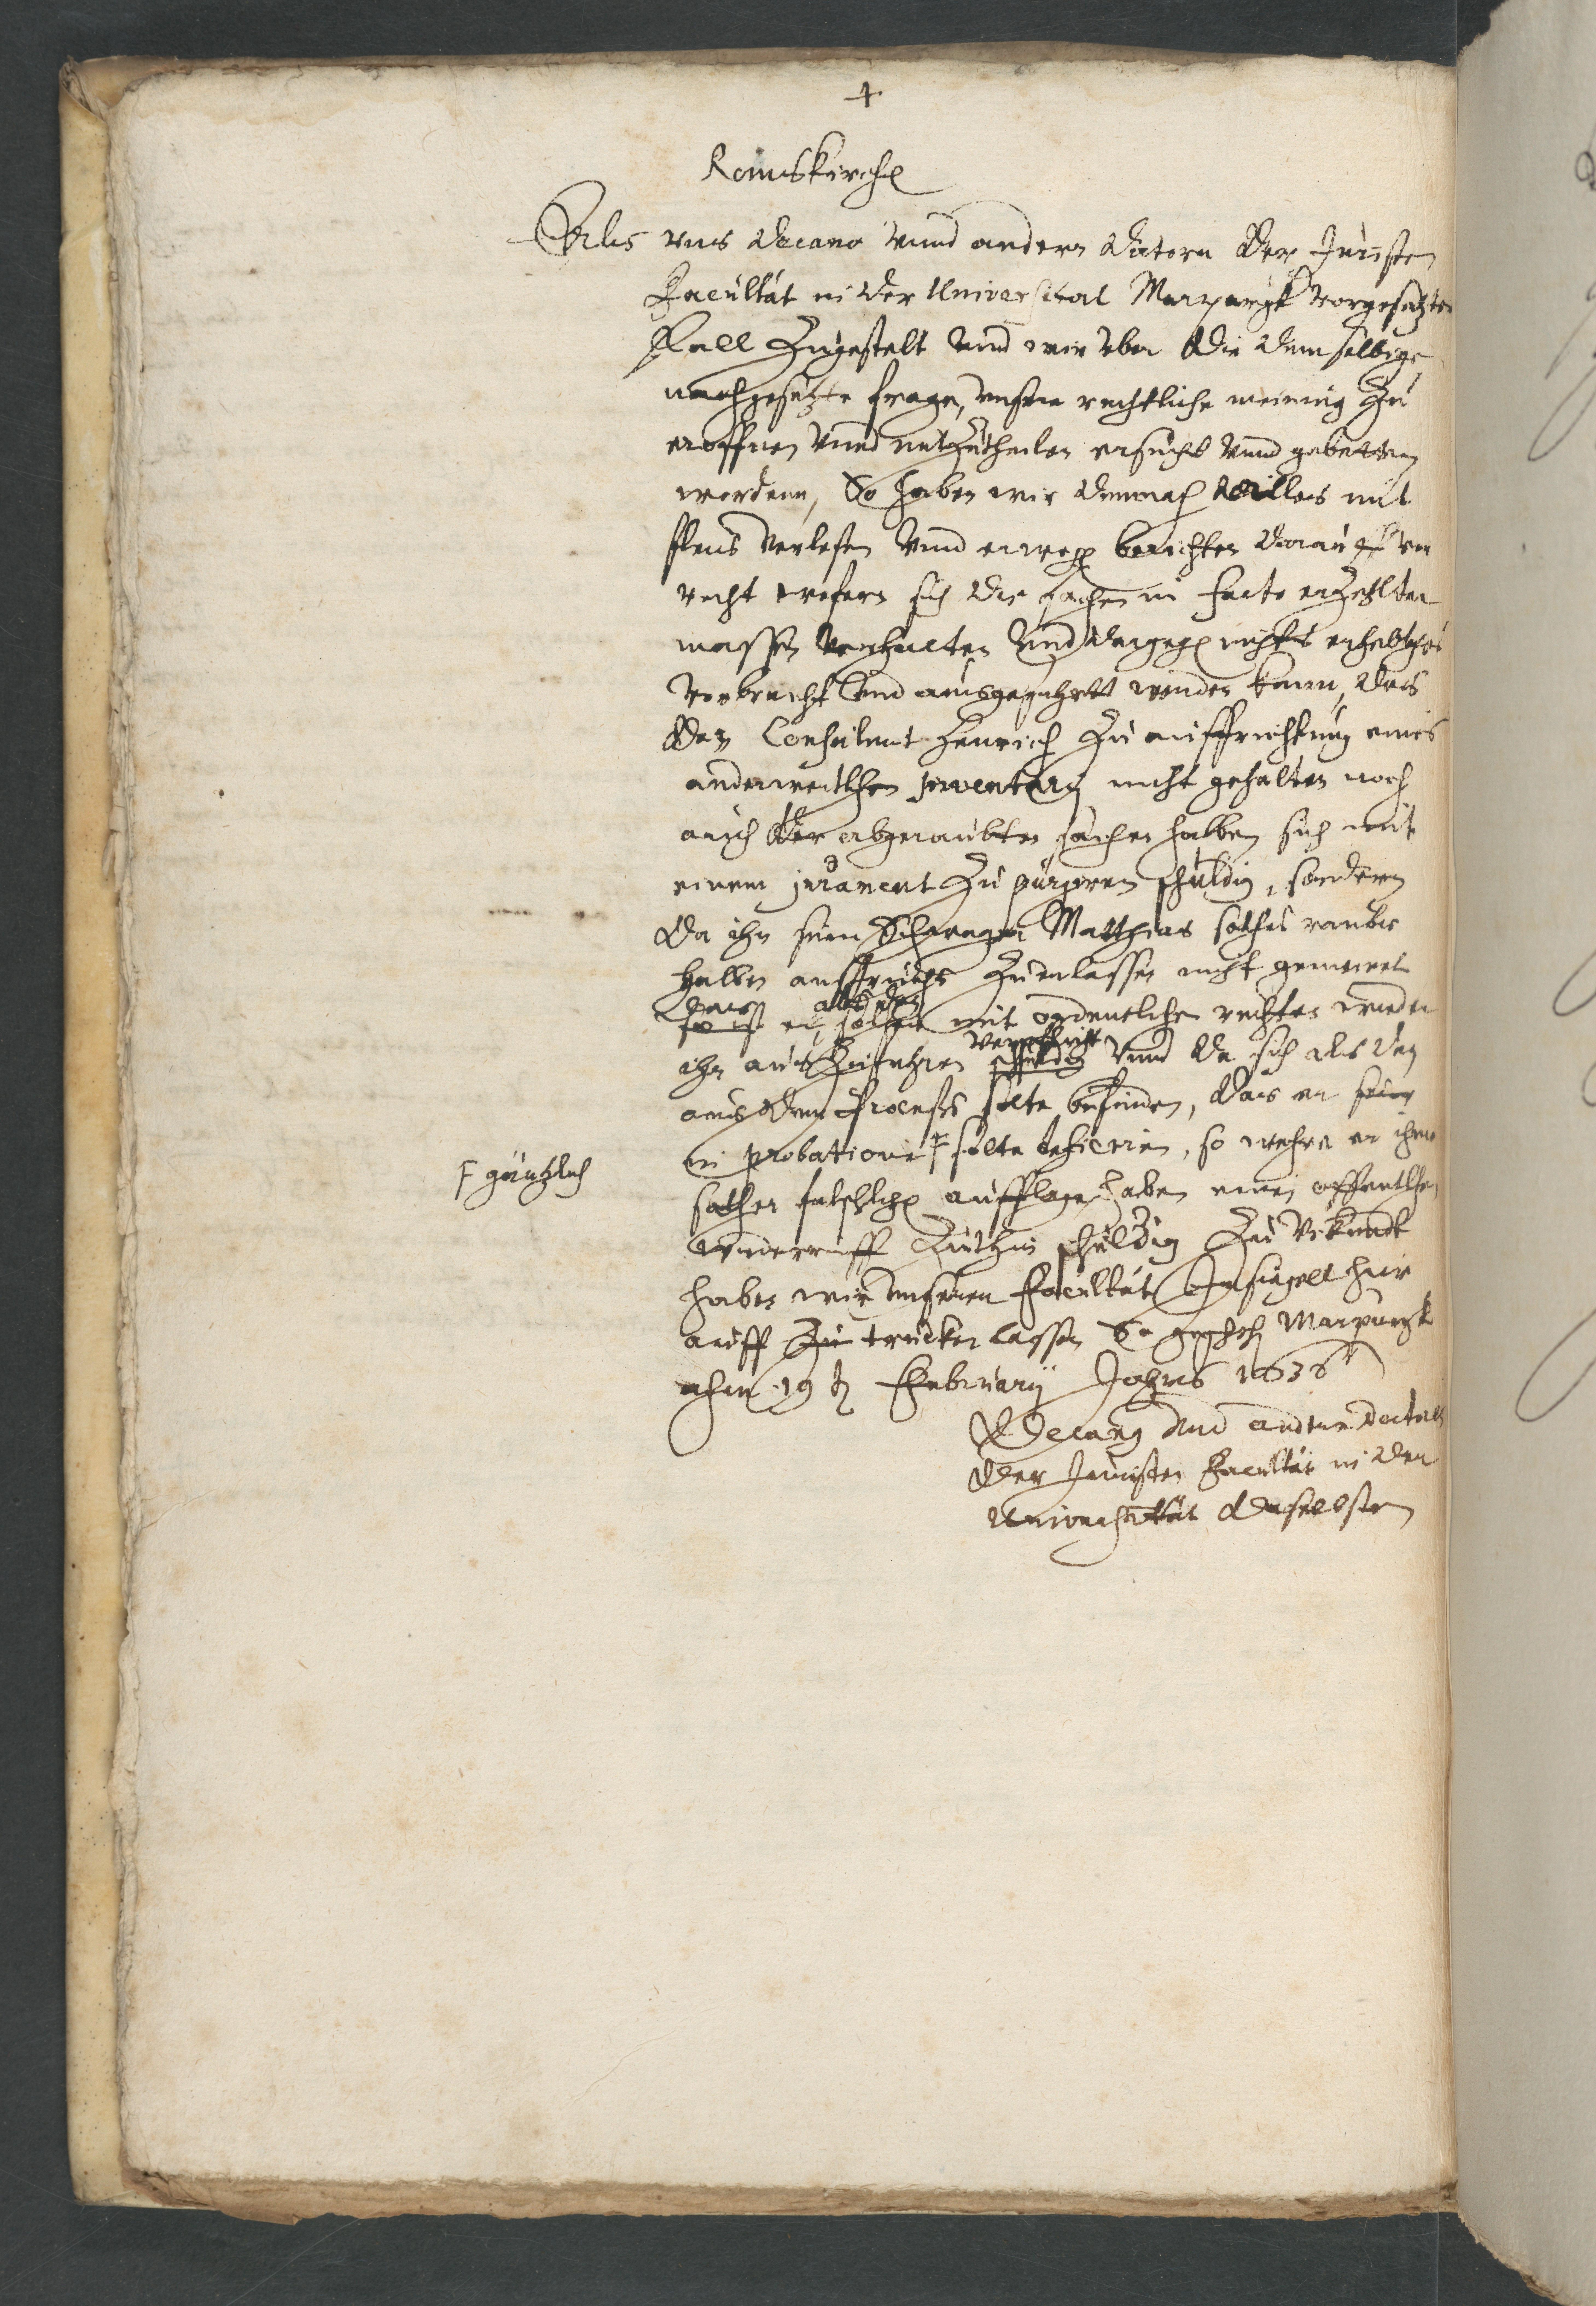 +
Romskirchen
Als vns Decano vnnd andern Doctorn der Juristen
Facultät in der Universitaet Marpurgk vorgesetzter
Fall Zugestelt vnnd wir vber die demselbigen
nachgesetzte frage, vnsere rechtliche meinung Zu
eroffnen vnnd mitZutheilen ersucht vnnd gebetten
wordenn, So haben wir demnach alles mit
fleis verlesen vnnd erwegen berichten darauff vor
recht wofern sich die sachen in facto erZehlter
massen verhielten vnd dargegen nichts erhebliches
vorbracht vnd ausgefuhrtt werden kann, das
der Consulent Henrich Zu auffrichtung eines
anderweitlichen inventarij nicht gehalten noch
auch der abgeraubten sachen halben sich mit
einem jurament Zu purgiren schuldig, sondern
Da ihn sein Schwager Matthias solches raubs
halben anspruchs Zuerlassen nicht gemeinet
das er solches mit ordentlichen rechten wieder
ihn ausZufuhren verpflicht schuldig vnnd da sich als dan
aus dem Process solte befinden, das er
in probatione solte deficiren, so wehre er ihme
F gäntzlich
solcher falschlichen aufflage haben einen offentlichen
wiederruff Zuthun schuldig Zu Vrkundt
haben wir vnseren Facultät Insiegell hier
auff Zu trucken lassen So geschehen Marpurgk
ahm 19 t Februarij Jahres 1636
Decanus vnd andere Doctores
der Juristen Facultät in der
Universitätt daselbsten